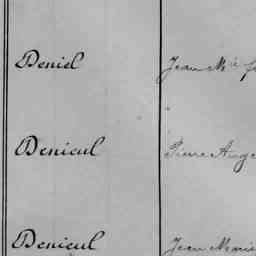 Deniel Jean Mie
Denieul Pierre Ange
Denieul Jean Marie